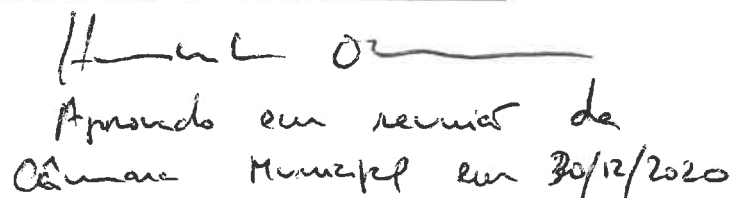 Aprovado em reunião da
Câmara Municipal em 30/12/2020